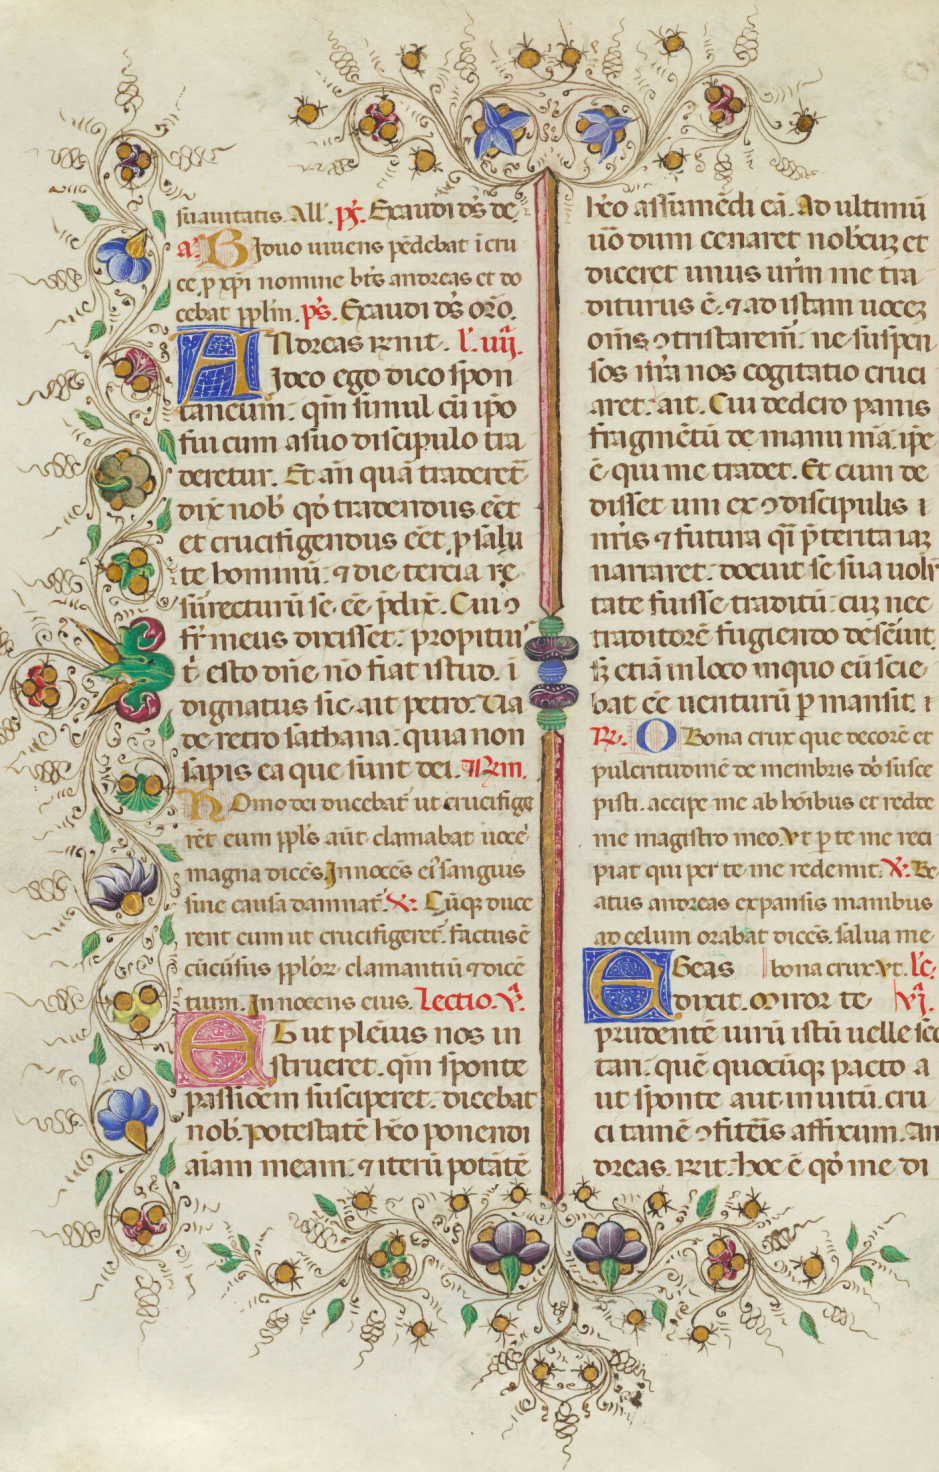 suauitatis. All'. ps. Exaudi ds de
a. Biduo uiuens pēdebat ī cru
ce, p xpi nomine btūs andreas et do
cebat pplm. ps. Exaudi ds orō.
Andreas rñit. l. iiij.
Ideo ego dico spon
taneum: qm̄ simul cū ipo
fui cum a suo discipulo tra
deretur. Et an̄ quā traderet
dix nob qd tradendus eēt
et crucifigendus eēt, p salu
te hominū: ⁊ die tercia re
surrecturū se eē pdix. Cui ꝯ
fr meus dixisset: propitiu
t esto dñe, nō fiat istud. i
dignatus sic ait petro. Ua
de retro sathana: quia non
sapis ea que sunt dei.
Homo dei ducebat ut crucifige
rēt eum ppls aūt clamabat uoce
magna dicēs Innocēs ei sanguis
sine causa damnat. V. Cūqꝫ duce
rent eum ut crucifigeret. factus ē
cūcursus pplōꝝ clamantiū ⁊ dicē
tium. Innocens eius. Lectio. v.
Et ut pleius nos in
strueret. qm̄ sponte
passiōem susciperet. dicebat
nob. potestatē hēo ponendi
aīam meam: ⁊ iterū potatē
hēo assumēdi eā. Ad ultimū
uō dum cenaret nobcuꝫ et
diceret unus urm me tra
diturus ē. ⁊ ad istam uoceꝫ
oms ꝯtristarem. ne suspen
sos nra nos cogitatio cruci
aret: ait. Cui dedero panis
fragmētū de manu mā: ipe
ē qui me tradet. Et cum de
disset uni ex ꝯdiscipulis
nris ⁊ futura qī pterita iaꝫ
narraret. docuit se sua uolū
tate fuisse traditū: cuꝫ nec
traditorē fugiendo deseuit
sꝫ etiā in loco in quo eū scie
bat eē uenturū pmansit.
R. O Bona crux que decorē et
pulcritudinē de membris dō susce
pisti. accipe me ab hoibus et redde
me magistro meo. Vt p te me reci
piat qui per te me redemit. V. Be
atus andreas expansis manibus
ad celum orabat dicēs. salua me
Egeas bona crux. Vt. lc.
dixit. Miror te vj.
prudentē uirū istū uelle sec
tari. quē quocūqꝫ pacto a
ut sponte aut inuitū, cru
ci tamē ꝯfiteīs affixum. An
dreas. rñt. hoc ē qd me di